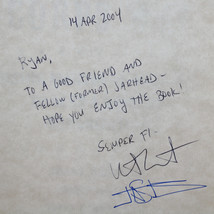 14 APR 2004
RYAN,
TO A GOOD FRIEND AND
FELLOW (FORMER) JARHEAD –
HOPE YOU ENJOY THE BOOK!
SEMPER FI –